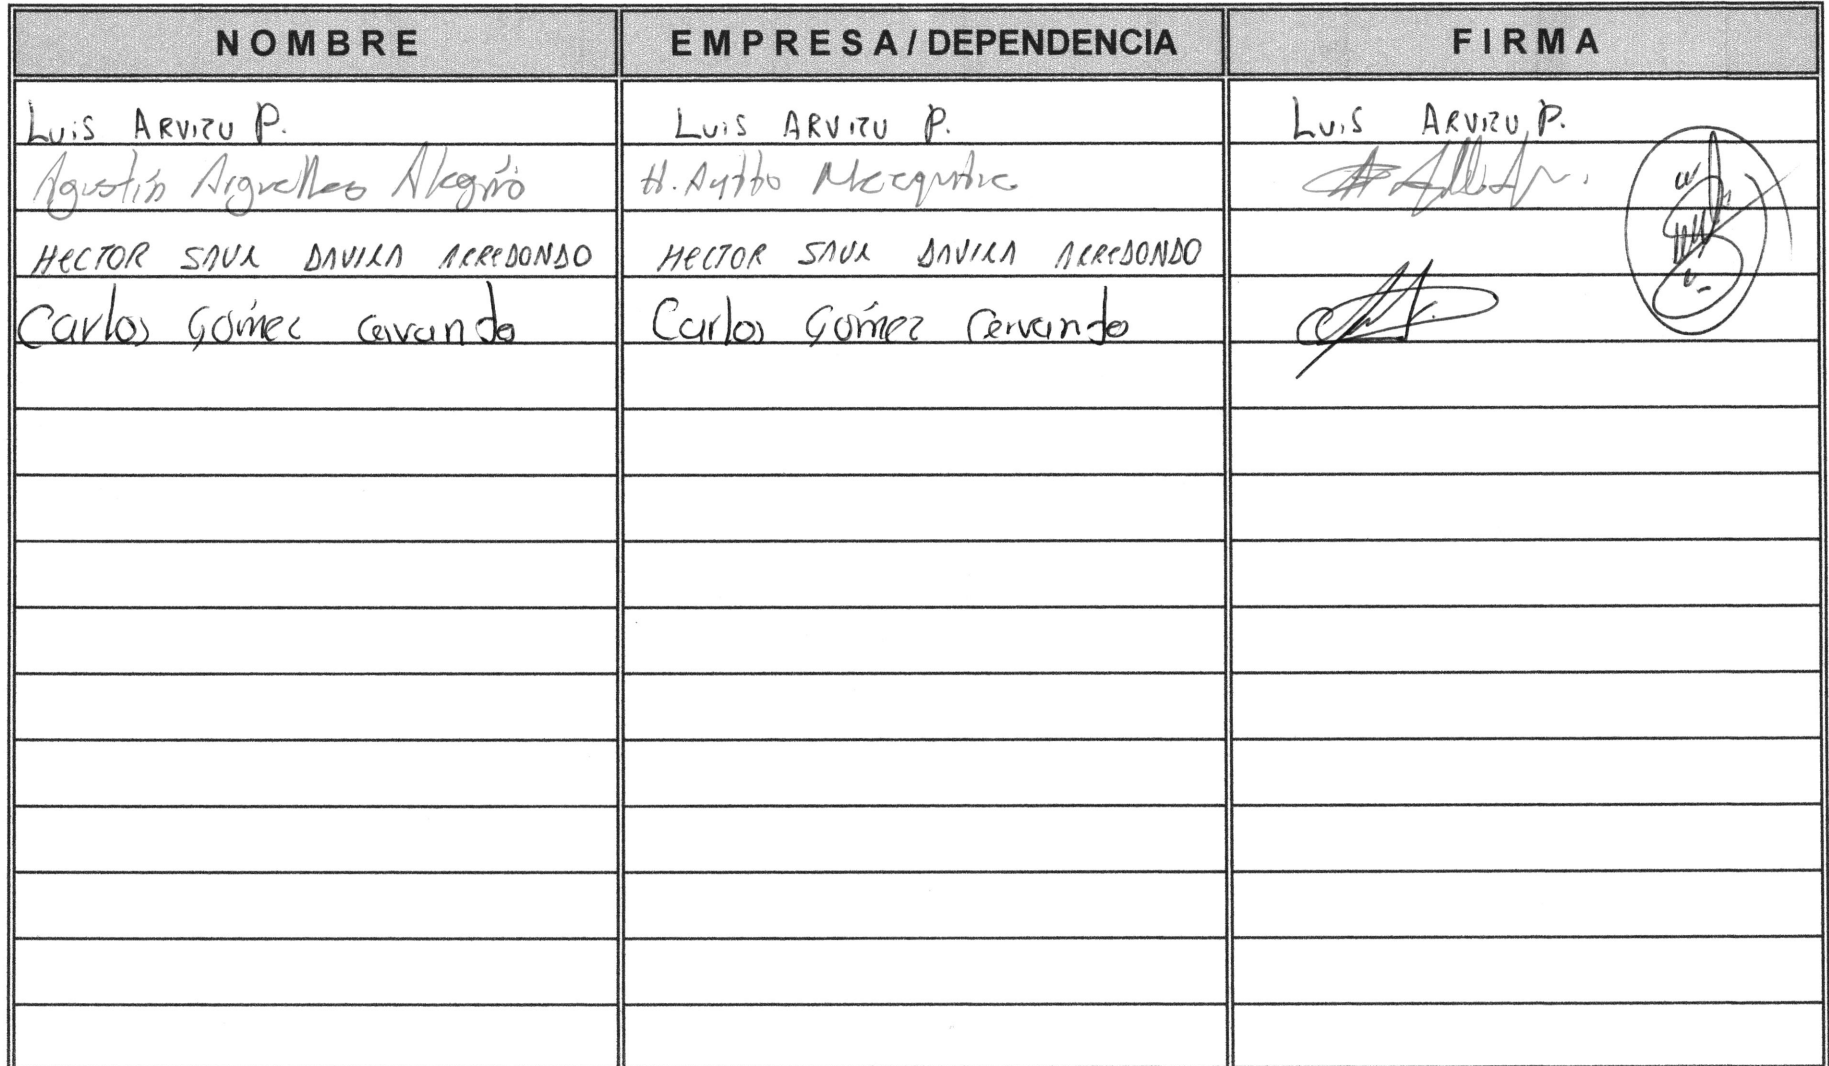 NOMBRE EMPRESA/DEPENDENCIA FIRMA
Luis ARVIZU P. Luis ARVIZU P. Luis ARVIZU P.
Agustín Arguelles Alegría H. Aytto
HECTOR SAUL DAVILA ARREDONDO HECTOR SAUL DAVILA ARREDONDO
Carlos Gómez Cervando Carlos Gómez Cervando